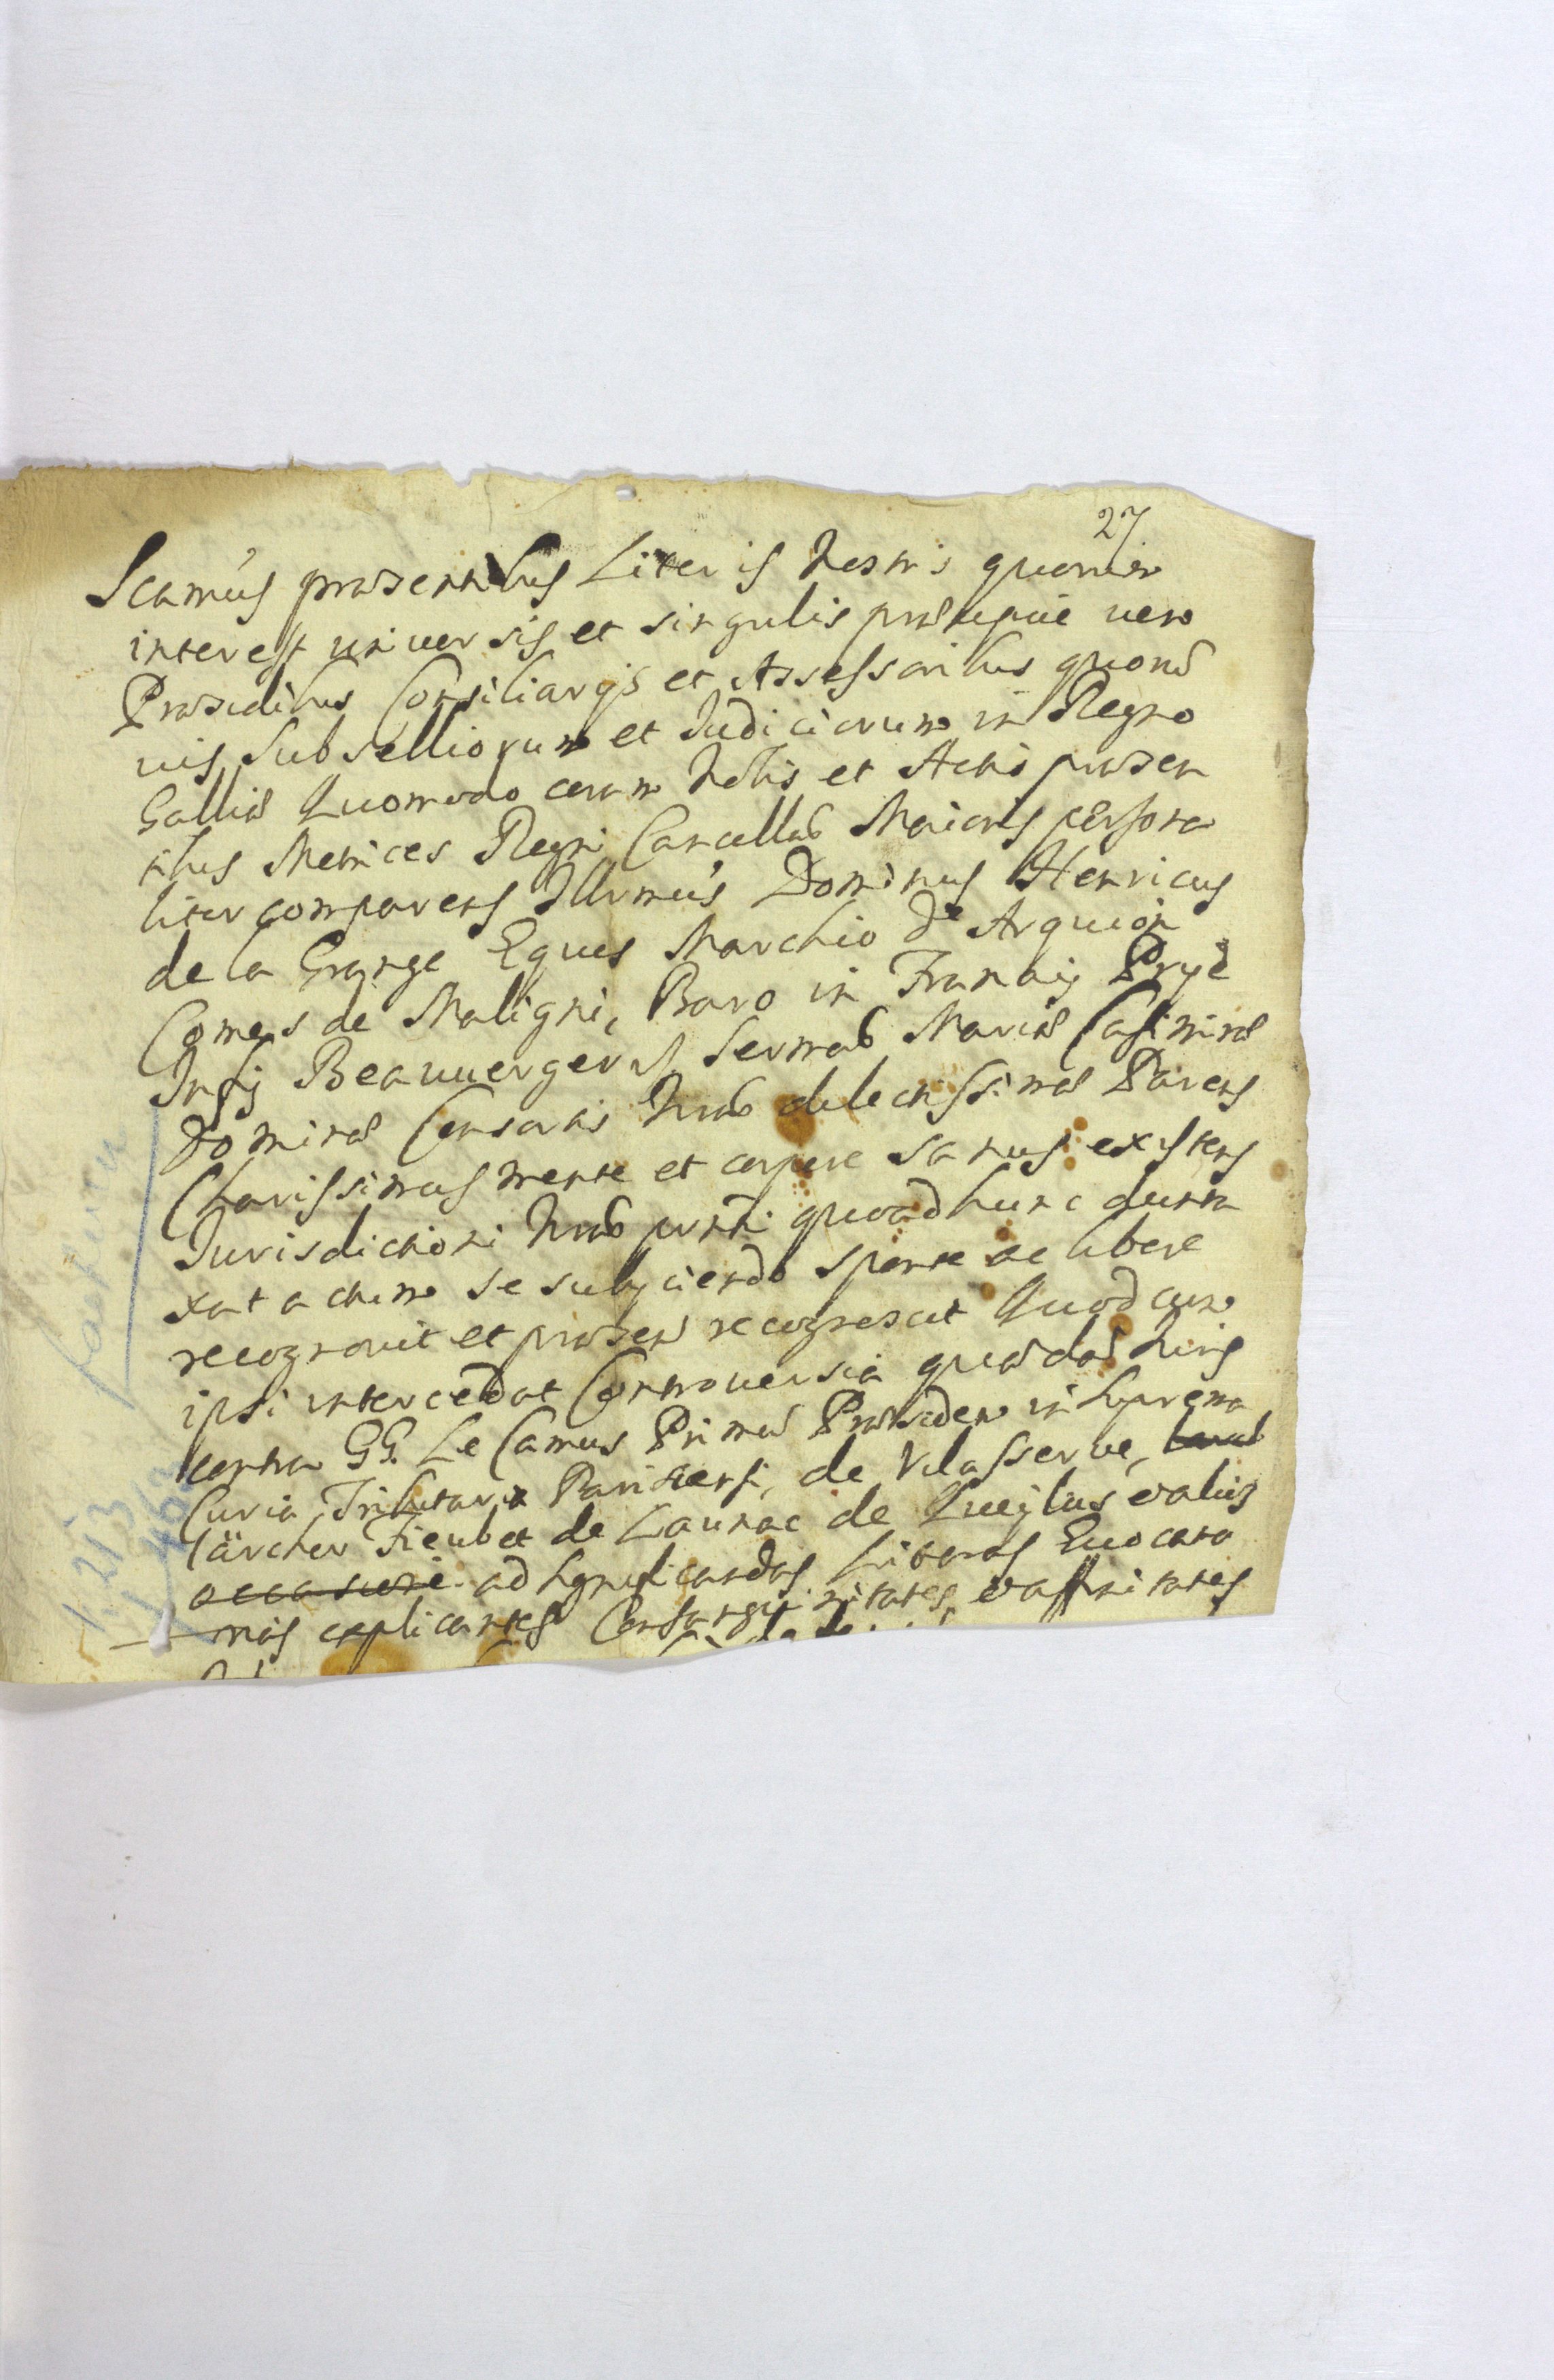 27
Scamus praesentibus Literis Nostris quorum
interest universis et singulis praecipue vero
Praesidibus Consiliarys et Assessoribus quorum
vis Subselliorum et Judiciorum in Regno
Galliae Quomodo coram Nobis et Actis praesen
tibus Metrices Regni Cancellae Maioris persona
liter comparens Illrmus Dominus Henricus
de la Grange Eques Marchio de Arquion
Comes de Maligni, Baro in Francis Prye
Imfy Beauvergers Sermae Mariae Casimirae
Dominae Consortis Nrae dilectissimae Parens
Charissimus mente et corpore sanus existens
Jurisdictioni Nrae prnti quoad hunc dunta
xat actum se subyciendo sponte ac libere
recognovit et praesen recognoscit Quod cum
ipsi intercedat Controversia quaedam Juris
contra GG. Le Camus Primum Praesidem in Suprema
Curia Tributaria Parisiensi, de Vilasserve,
Larcher Fieubet de Launac de Queylus et alios
occasione ad significandas Literas Evocato
rias explicantes Consanguinitates, et affinitates